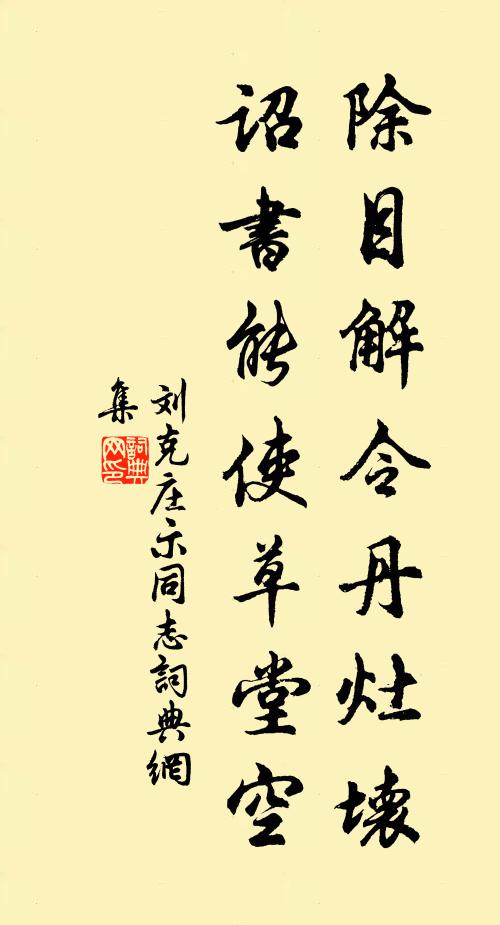 除目解令丹灶壞
詔書能使草堂空
刘克庄示同志詞典網
集
詞典网印